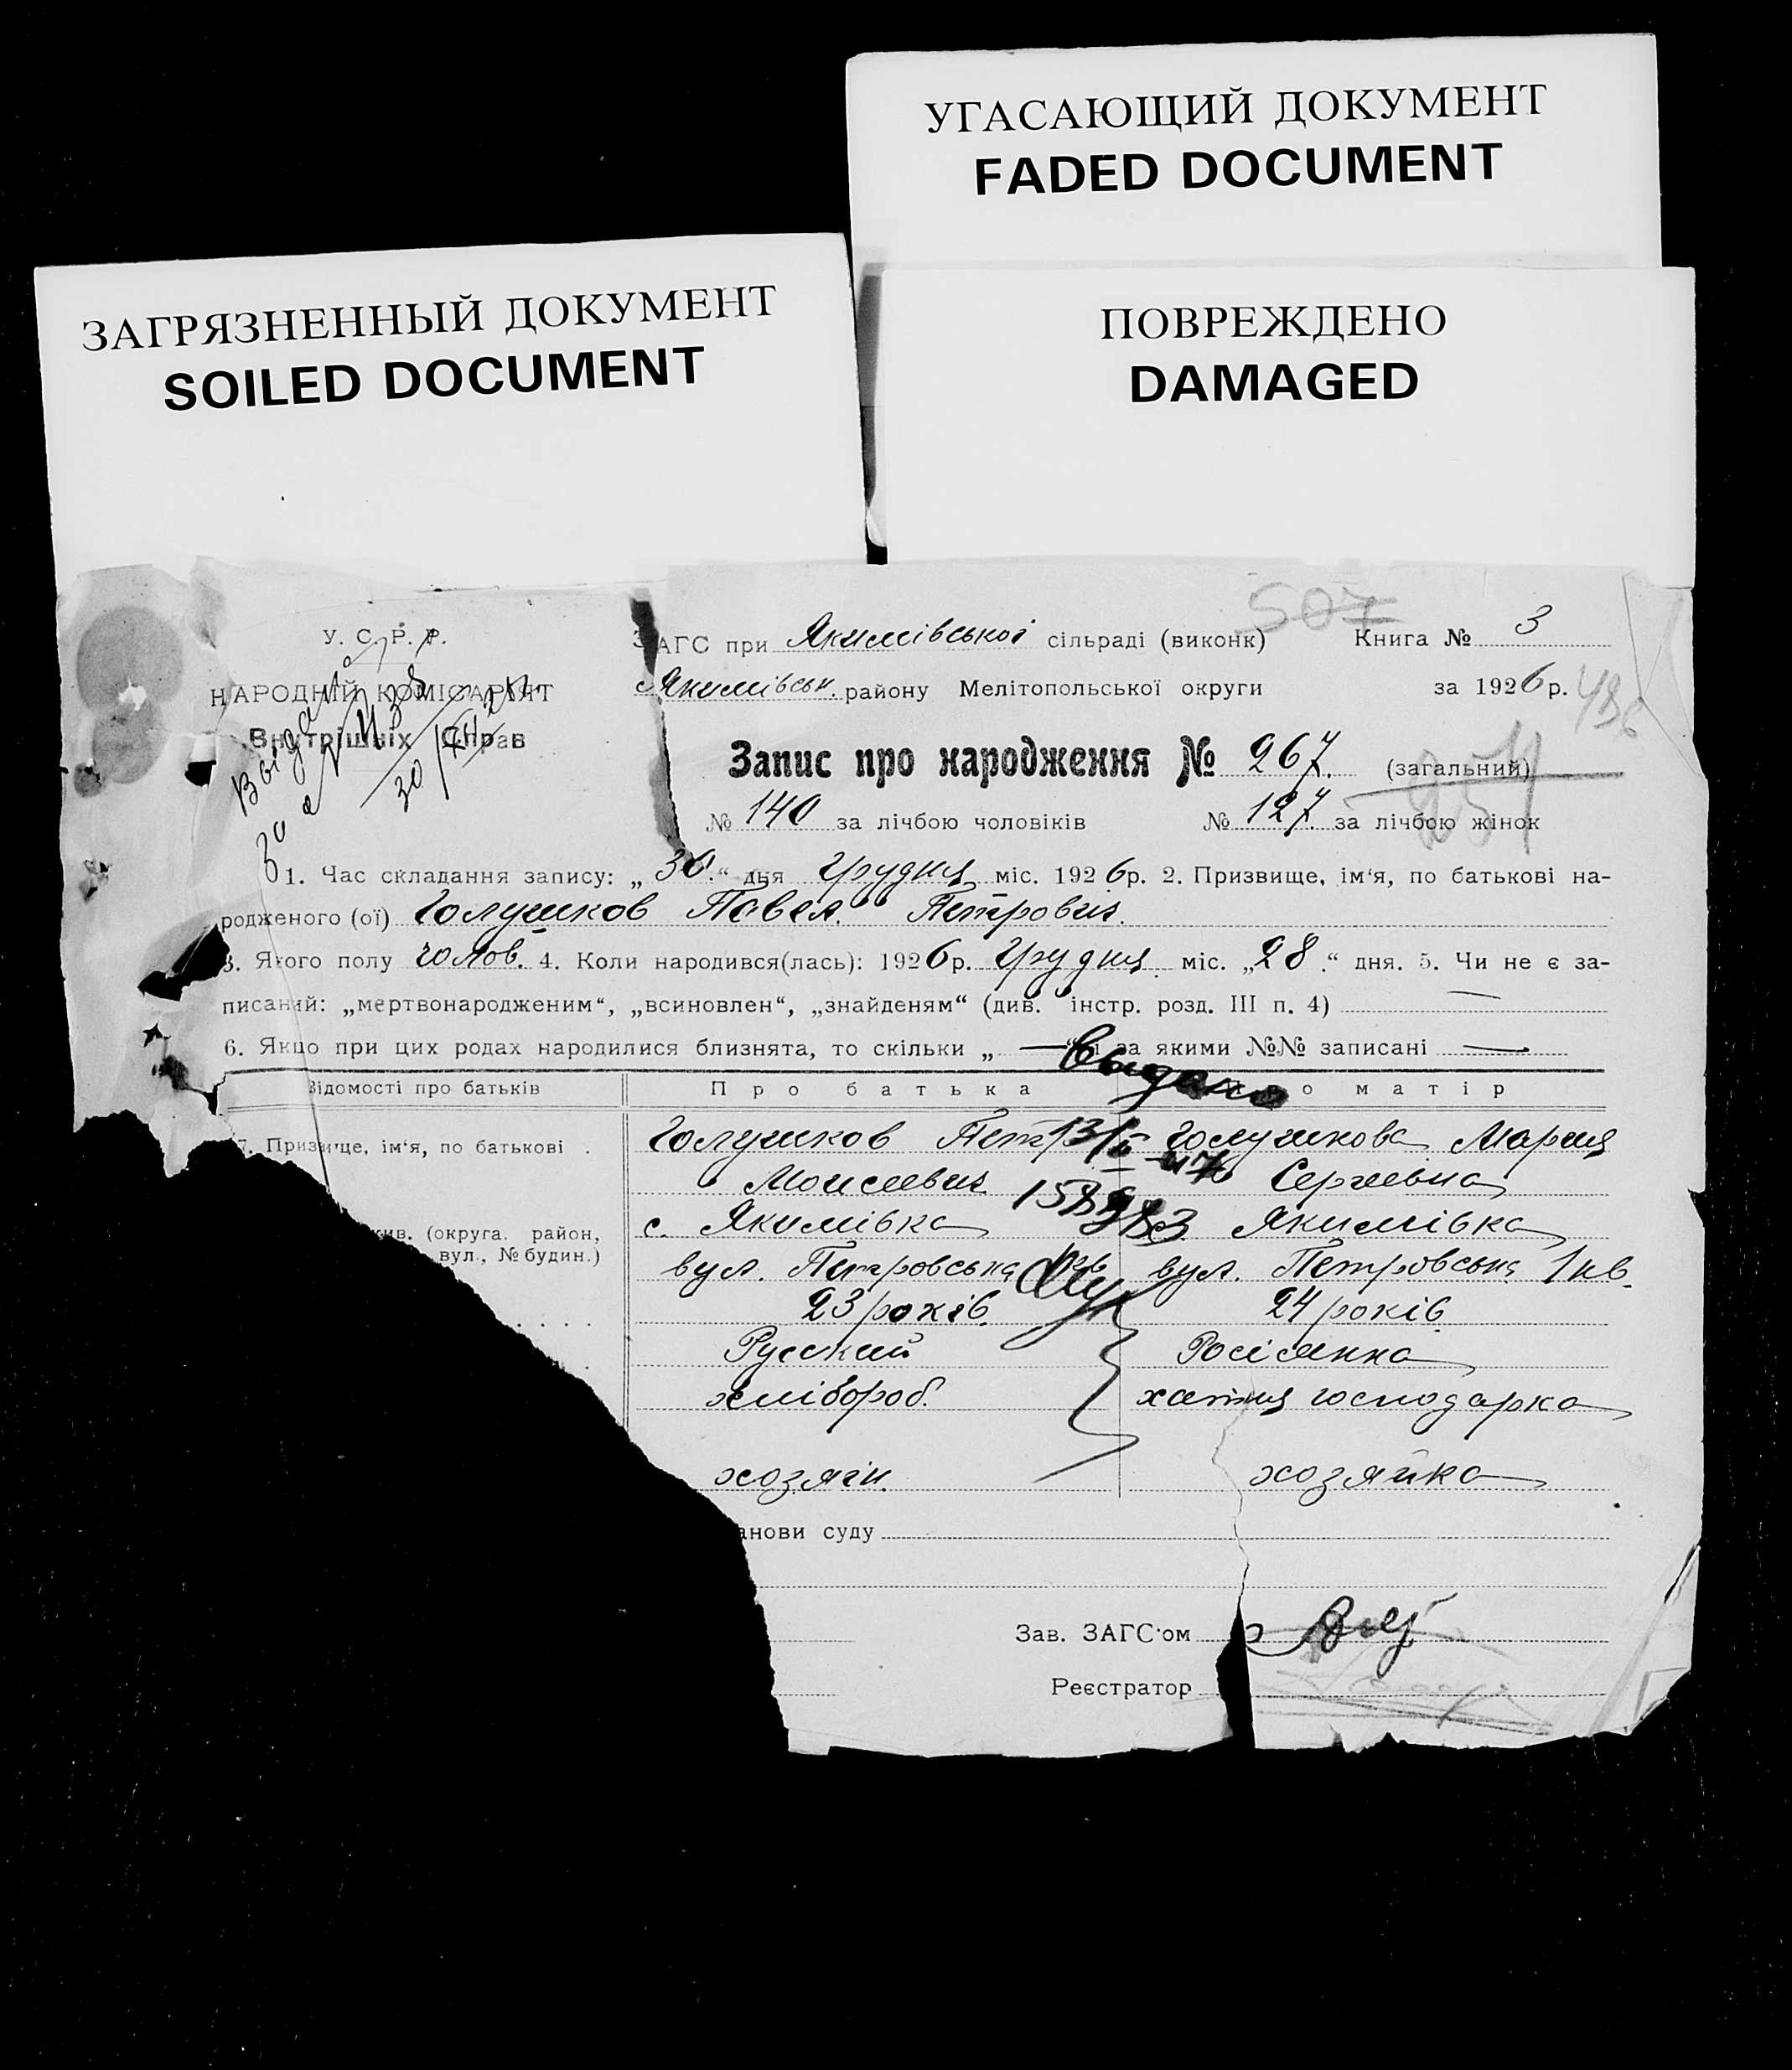 УГАСАЮЩИЙ ДОКУМЕНТ
FADED DOCUMENT
ЗАГРЯЗНЕННЫЙ ДОКУМЕНТ
SOILED DOCUMENT
ПОВРЕЖДЕНО
DAMAGED
507
У. С. Р. Р.
НАРОДНІЙ КОМІСАРІЯТ
Внутрішніх Справ
ЗАГС при Якимівської сільраді (виконк) Книга № 3
Якимівськ. району Мелітопольської округи за 1926 р.
Запис про народження № 267. (загальний)
№ 140 за лічбою чоловіків № 127. за лічбою жінок
1. Час складання запису: „30.“ дня Грудня міс. 1926р. 2. Призвище, ім‘я, по батькові на-
родженого (ої) Голушков Павел Петрович.
3. Якого полу чолов. 4. Коли народився(лась): 1926р. Грудня міс. „28.“ дня. 5. Чи не є за-
писаний: „мертвонародженим“, „всиновлен“, „знайденям“ (див. інстр. розд. III п. 4) —
6. Якщо при цих родах народилися близнята, то скільки „ — за якими №№ записані —
выдано
Відомості про батьків Про батька о матір
7. Призвище, ім‘я, по батькові . Голушков Петр Голушкова Мария
Моисеевич Сергеевна
жив. (округа. район, с. Якимівка Якимівка
вул., № будин.) вул. Петровська вул. Петровська 1 кв.
23 років. 24 років.
Русский Росіянка
хлібороб. хатня господарка
хозяін. хозяйка
анови суду
Зав. ЗАГС‘ом
Реєстратор